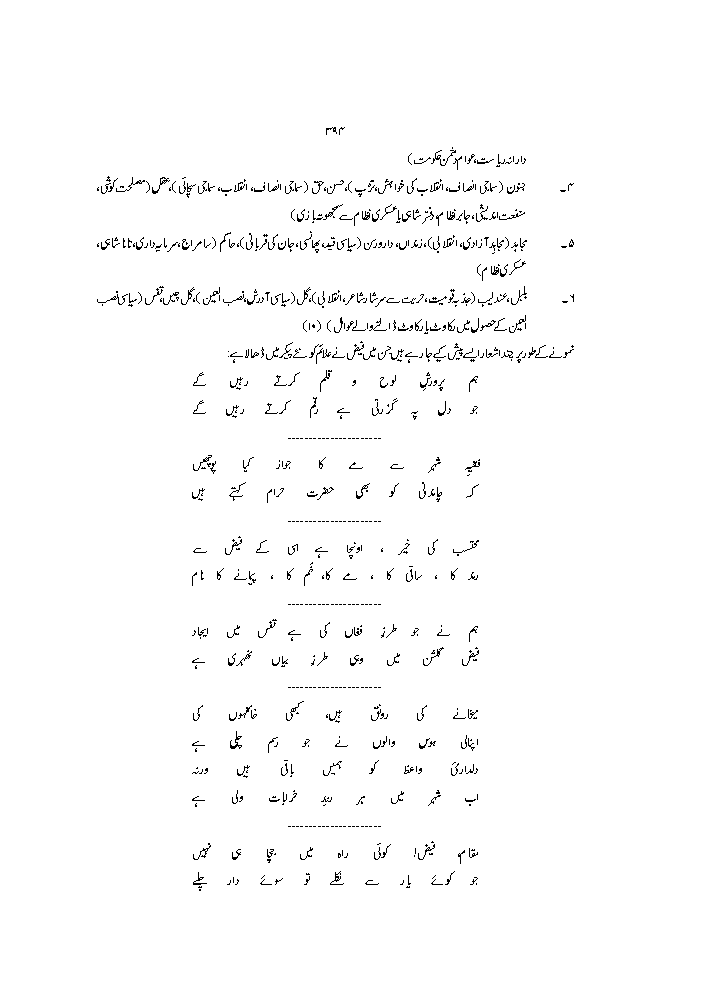 ۳۹۴
دارانہ ریاست، عوام دشمن حکومت)
۴۔ جنون (سماجی انصاف، انقلاب کی خواہش، تڑپ)، حسن، حق (سماجی انصاف، انقلاب، سماجی سچائی)، عقل (مصلحت کوشی،
منفعت اندیشی، جابر نظام، دفتر شاہی یا عسکری نظام سے سمجھوتہ بازی)
۵۔ مجاہد (مجاہدِ آزادی، انقلابی)، زنداں، دار ورسن (سیاسی قید، پھانسی، جان کی قربانی)، حاکم (سامراج، سرمایہ داری، تاناشاہی،
عسکری نظام)
۶۔ بلبل، عندلیب (جذبۂ قومیت، حریت سے سرشار شاعر، انقلابی)، گل (سیاسی آدرش، نصب العین)، گل چیں، قفس (سیاسی نصب
العین کے حصول میں رکاوٹ یا رکاوٹ ڈالنے والے عوامل) (۱۰)
نمونے کے طور پر چند اشعار ایسے پیش کیے جا رہے ہیں جن میں فیض نے علائم کو نئے پیکر میں ڈھالا ہے:
ہم پرورشِ لوح و قلم کرتے رہیں گے
جو دل پہ گزرتی ہے رقم کرتے رہیں گے
----------------------
فقیہِ شہر سے مے کا جواز کیا پوچھیں
کہ چاندنی کو بھی حضرت حرام کہتے ہیں
----------------------
محتسب کی خیر ، اونچا ہے اسی کے فیض سے
رند کا ، ساقی کا ، مے کا، خُم کا ، پیمانے کا نام
----------------------
ہم نے جو طرزِ فغاں کی ہے قفس میں ایجاد
فیض گلشن میں وہی طرزِ بیاں ٹھہری ہے
----------------------
میخانے کی رونق ہیں، کبھی خانقہوں کی
اپنالی ہوس والوں نے جو رسم چلی ہے
دلداریٔ واعظ کو ہمیں باقی ہیں ورنہ
اب شہر میں ہر رندِ خرابات ولی ہے
----------------------
مقام، فیض! کوئی راہ میں جچا ہی نہیں
جو کوئے یار سے نکلے تو سوئے دار چلے